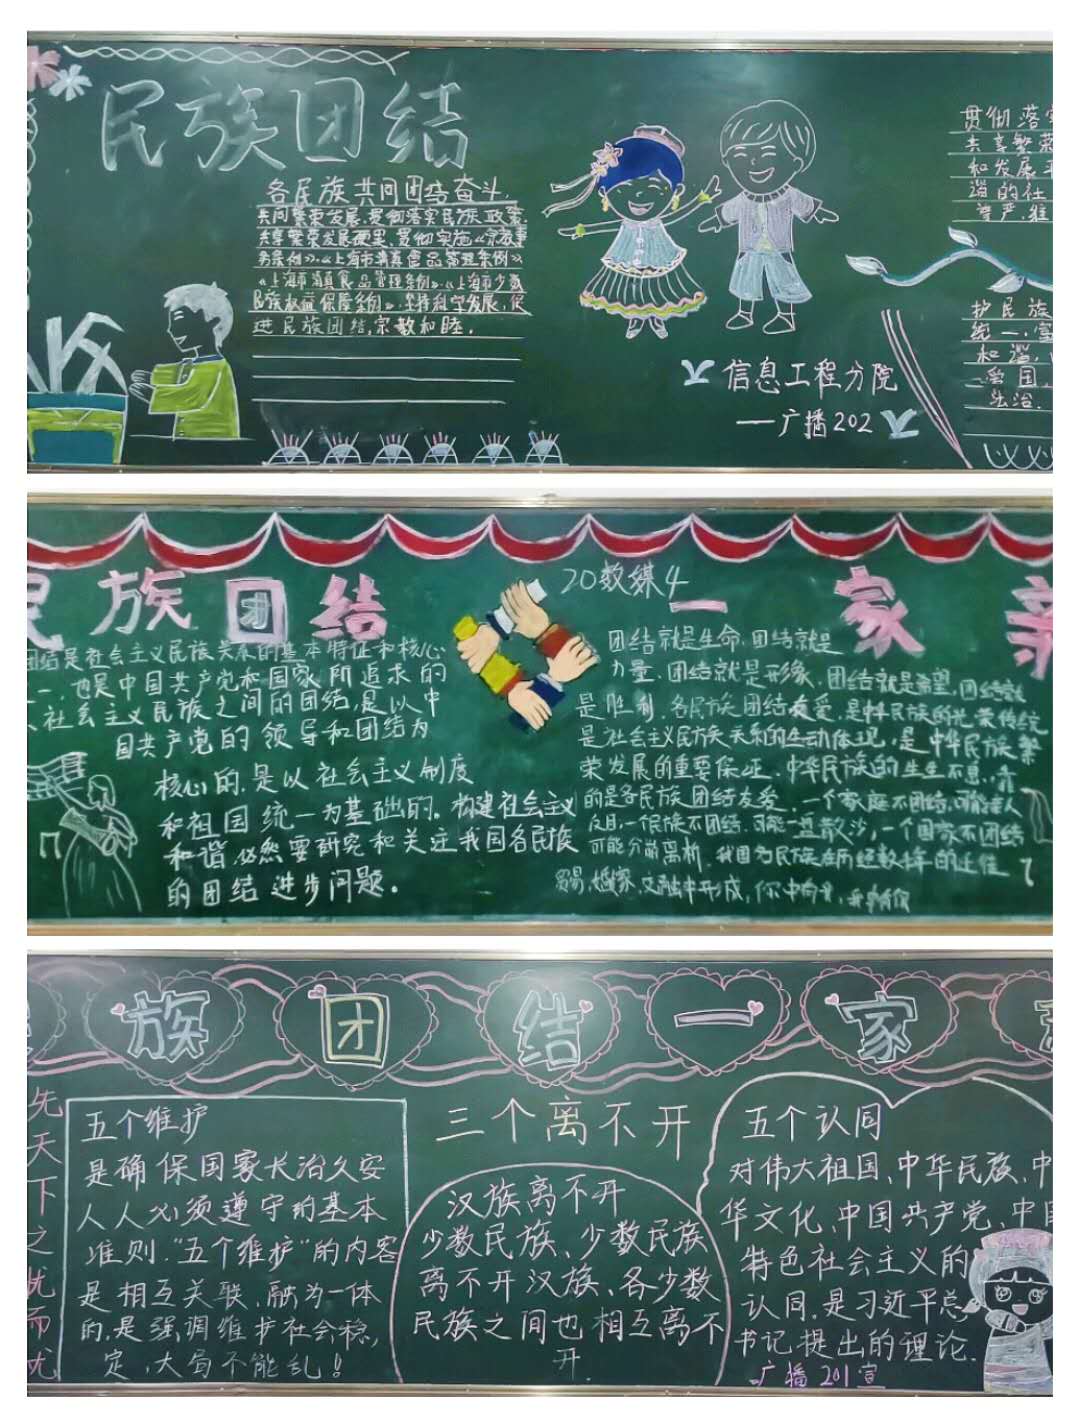 民族团结
各民族共同团结奋斗.
共同繁荣发展.贯彻落实民族政策.
共享繁荣发展硬果、贯彻实施《宗教事
务条例》.《上海市清真食品管理条例》
《上海市清真食品管理条例》.《上海市少数
民族权益保障条例》.坚持科学发展,促
进民族团结,宗教和睦.
信息工程分院
—广播202
贯彻落实
共享繁荣
和发展
谐的社
护民族
统一,
和谐,
爱国,
法治.
民族团结 一家亲
20数媒4
团结是社会主义民族关系的基本特征和核心
一,也是中国共产党和国家所追求的
社会主义民族之间的团结,是以中
国共产党的领导和团结为
核心的.是以社会主义制度
和祖国统一为基础的.构建社会主义
和谐必然要研究和关注我国各民族
的团结进步问题。
团结就是生命,团结就是
力量,团结就是形象,团结就是希望,团结就
是胜利,各民族团结友爱,是中华民族的光荣传统
是社会主义民族关系的生动体现,是中华民族繁
荣发展的重要保证.中华民族的生生不息,靠
的是各民族团结友爱.一个家庭不团结,可能亲人
反目,一个民族不团结,可能一盘散沙,一个国家不团结
可能分崩离析.我国各民族在历经数千年的迁徙
贸易,婚嫁,交融中形成,你中有我,我中有你
族团结一家
先天下之忧而忧
五个维护
是确保国家长治久安
人人必须遵守的基本
准则."五个维护"的内容
是相互关联、融为一体
的,是强调维护社会稳,
定,大局不能乱!
三个离不开
汉族离不开
少数民族、少数民族
离不开汉族、各少数
民族之间也相互离不
开.
五个认同
对伟大祖国、中华民族、中
华文化、中国共产党、中国
特色社会主义的
认同,是习近平总
书记提出的理论.
广播201宣